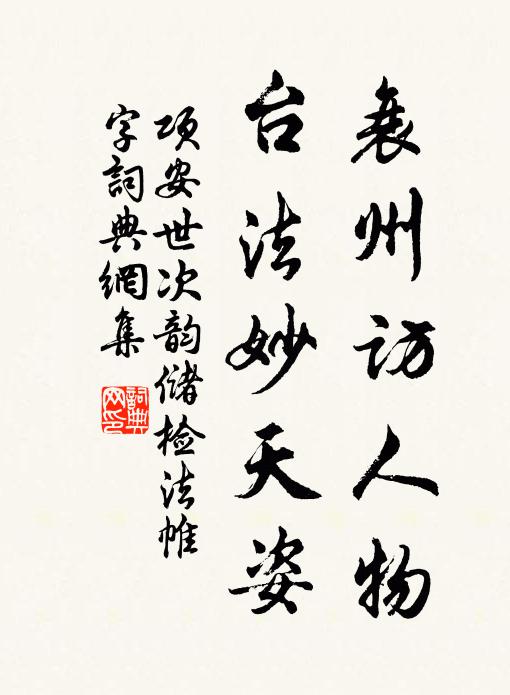 襄州访人物
台法妙天姿
项安世次韵储检法帷
字詞典網集
詞典
网印